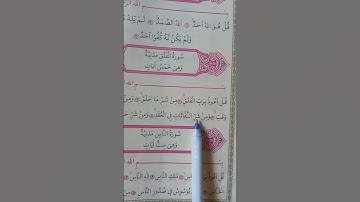 م الله
قُلْ هُوَ اللّٰهُ اَحَدٌ اَللّٰهُ الصَّمَدُ لَمْ يَلِدْ
وَلَمْ يَكُنْ لَهُ كُفُوًا اَحَدٌ
سُورَةُ الْفَلَقِ مَدَنِيَّةٌ
وَهِىَ خَمْسُ اٰيَاتٍ
م الله
قُلْ اَعُوذُ بِرَبِّ الْفَلَقِ مِنْ شَرِّ مَا خَلَقَ وَمِنْ
وَقَبَ وَمِنْ شَرِّ النَّفَّاثَاتِ فِى الْعُقَدِ وَمِنْ شَرِّ
سُورَةُ النَّاسِ مَدَنِيَّةٌ
وَهِىَ سِتُّ اٰيَاتٍ
م الله
قُلْ اَعُوذُ النَّاسِ مَلِكِ النَّاسِ اِلٰهِ النَّاسِ
يُوَسْوِسُ فِى صُدُورِ النَّاسِ